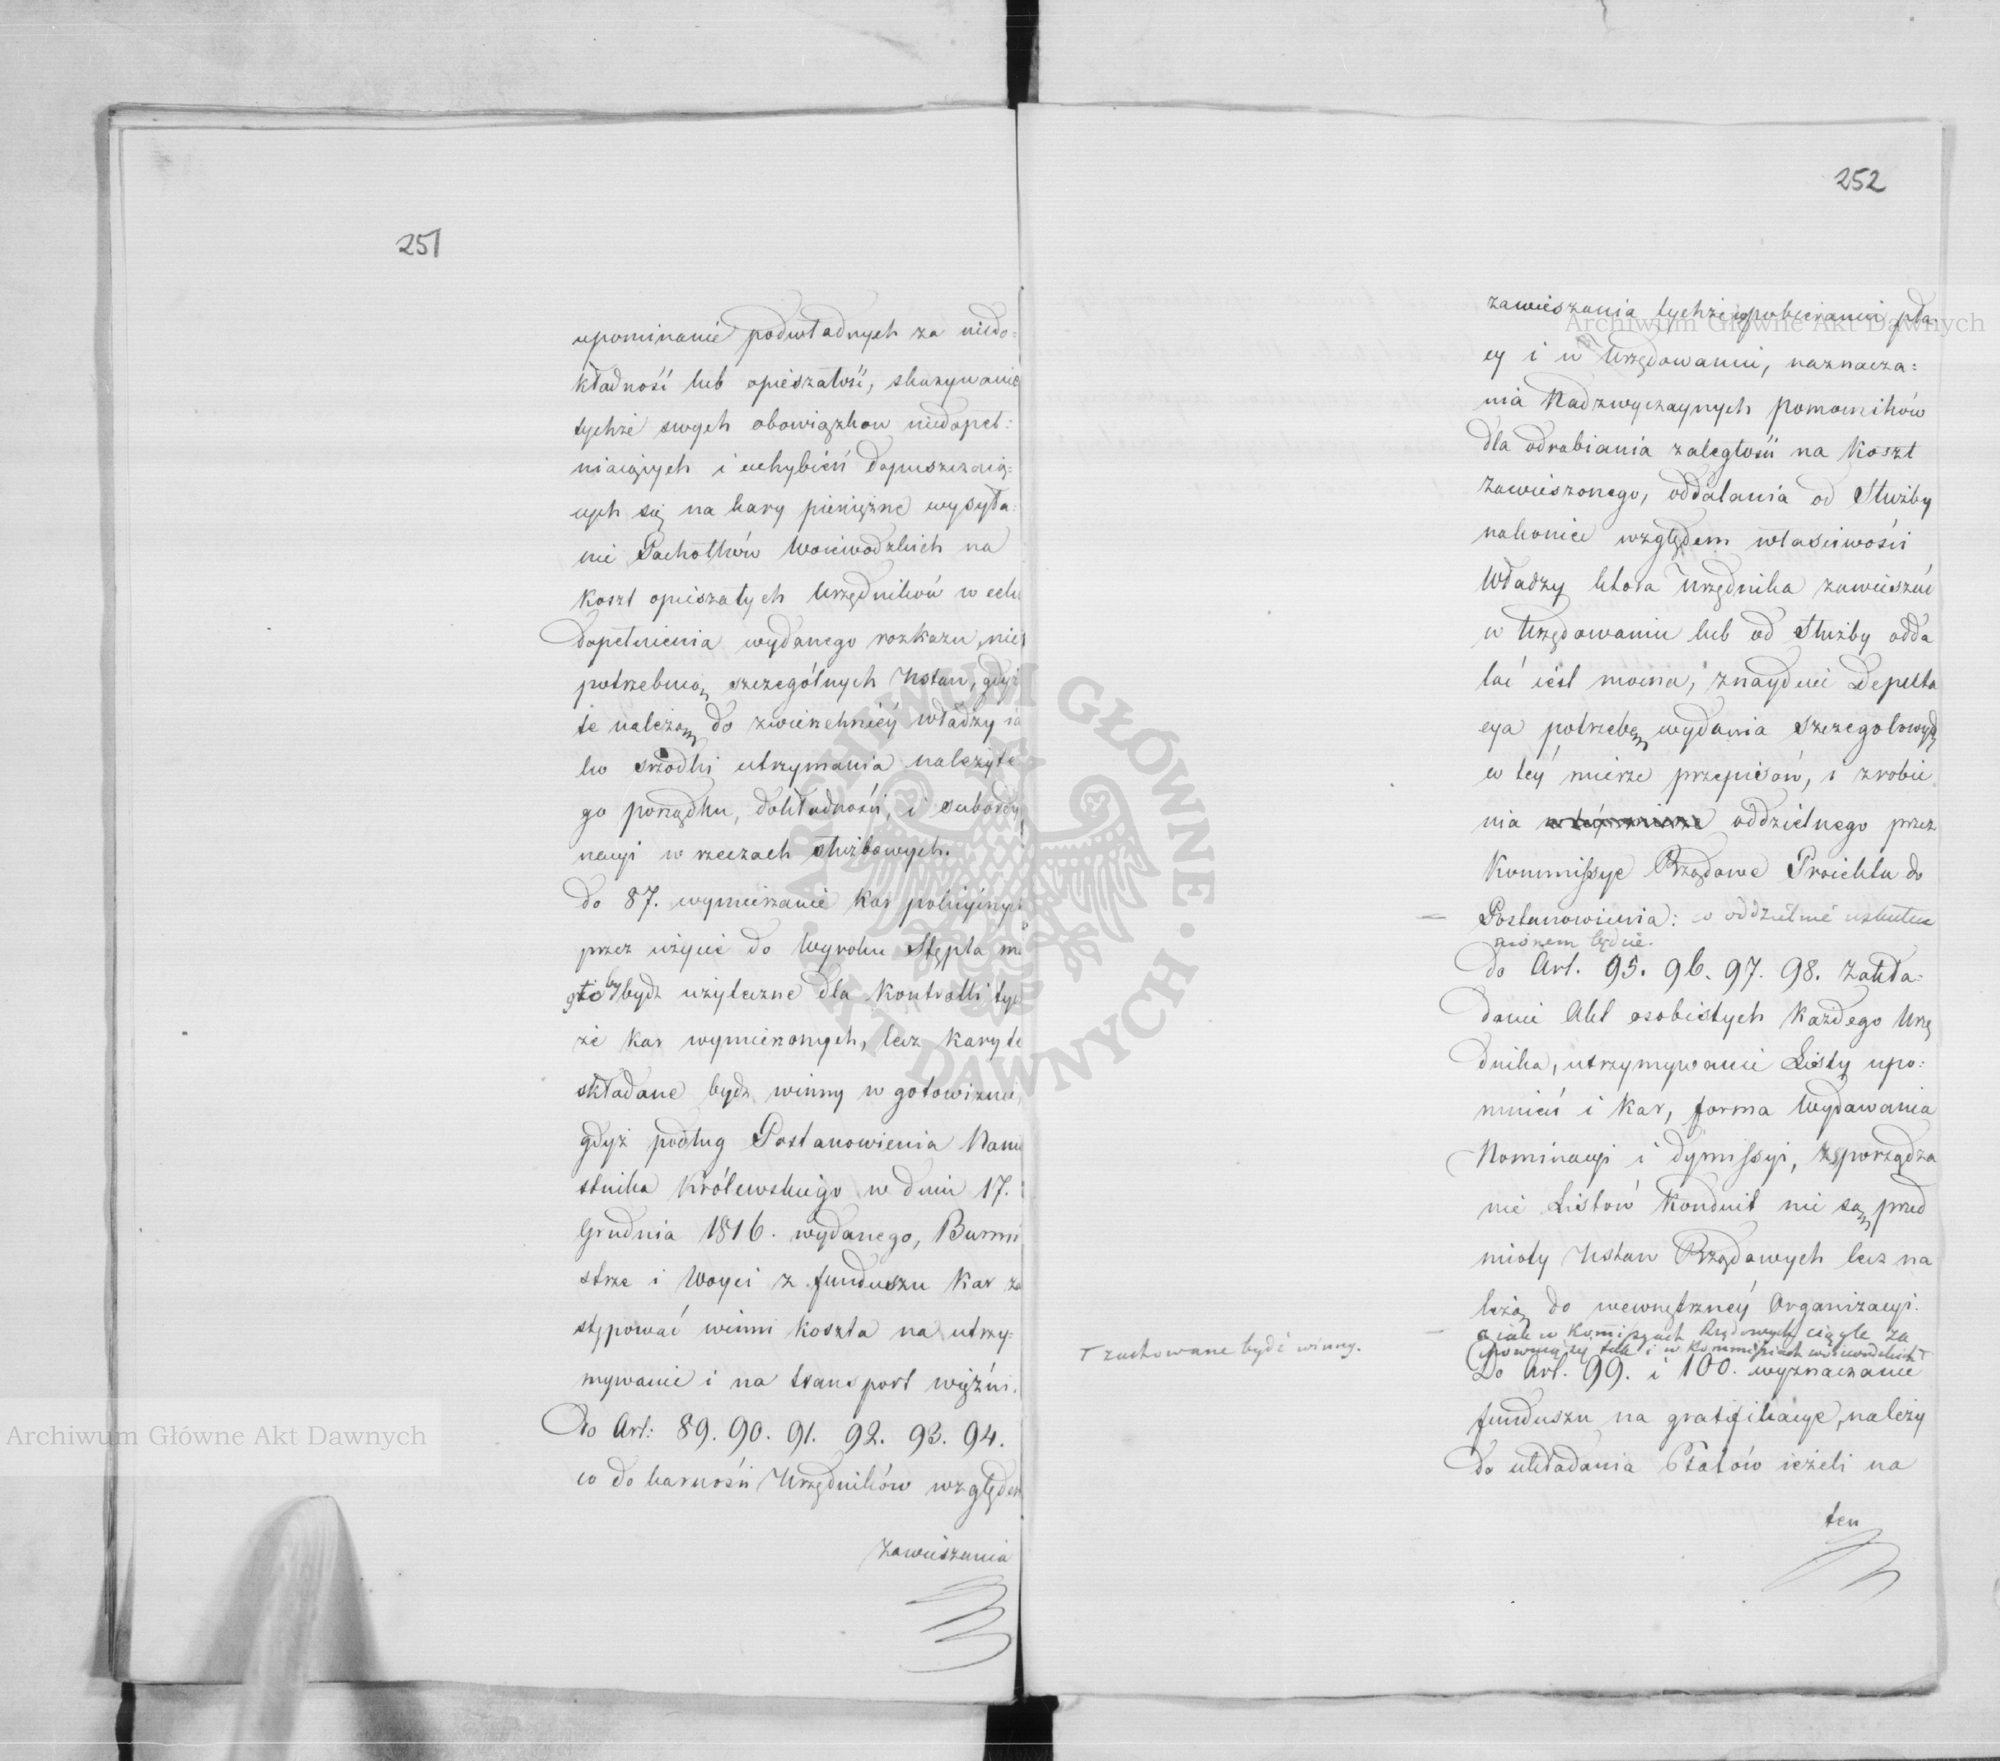 251
upominanie podwładnych za niedo=
kładność lub opieszałość, skazywanie
tychże swych obowiązkow niedopeł=
niaiących i uchybień dopuszczaią=
cych się na kary pieniężne wysyła=
nie Pachołków Woiewodzkich na
koszt opieszałych Urzędników w celu
dopełnienia wydanego rozkazu, nie
potrzebuią szczególnych Ustaw, gdyż
te należą do zwierzchniéy władzy ia
ko srzodki utrzymania należyte
go porządku, dokładności, i subordy
nacyi w rzeczach służbowych.
do 87. wymierzanie kar policyinych
przez użycie do Wyroku Stępla mo
gło by bydz użyteczne dla kontrolli tyc
że kar wymierzonych, lecz kary te
składane bydz winny w gotowiznie,
gdyż podług Postanowienia Namie
stnika Królewskiego w dniu 17.
Grudnia 1816. wydanego, Burmi
strze i Woyci z funduszu kar za
stępować winni koszta na utrzy=
mywanie i na transport więźni.
Do Art: 89. 90. 91. 92. 93. 94.
co do karności Urzędników względem
zawieszania
252
zawieszania tychże w pobieraniu pła
cy i w Urzędowaniu, naznacza=
nia Nadzwyczaynych pomocników
dla odrabiania zaległości na koszt
zawieszonego, oddalania od Służby
nakonice względem właściwości
Władzy ktora Urzędnika zawieszać
w Urzędowaniu lub od Służby odda
lać iest mocna, znayduie Deputa
cya potrzebę wydania szczegołowych
w téy mierze przepisów, i zrobie
nia w téy mierze oddzielnego przez
Kommissye Rządowe Proiektu do
Postanowienia: co oddzielnie uskutecz
nionem będzie.
do Art. 95. 96. 97. 98. Zakła=
danie Akt osobistych każdego Urzę
dnika, utrzymywanie Listy upo=
mnień i kar, forma Wydawania
Nominacyi i dymissyi, sporządza
nie Listów Konduit nie są przed
mioty Ustaw Rządowych lecz na
leżą do wewnętrznéy Organizacyi.
a iak w Kommissyach Rządowych ciągle za
chowuią się tak i w Kommissiach woiewodzkich T
T zachowane być winny.
Do Art. 99. i 100. wyznaczanie
funduszu na gratyfikacye, należy
do układania Etatów ieżeli na
ten
Archiwum Główne Akt Dawnych
Archiwum Główne Akt Dawnych
ARCHIWUM GŁÓWNE · AKT DAWNYCH ·